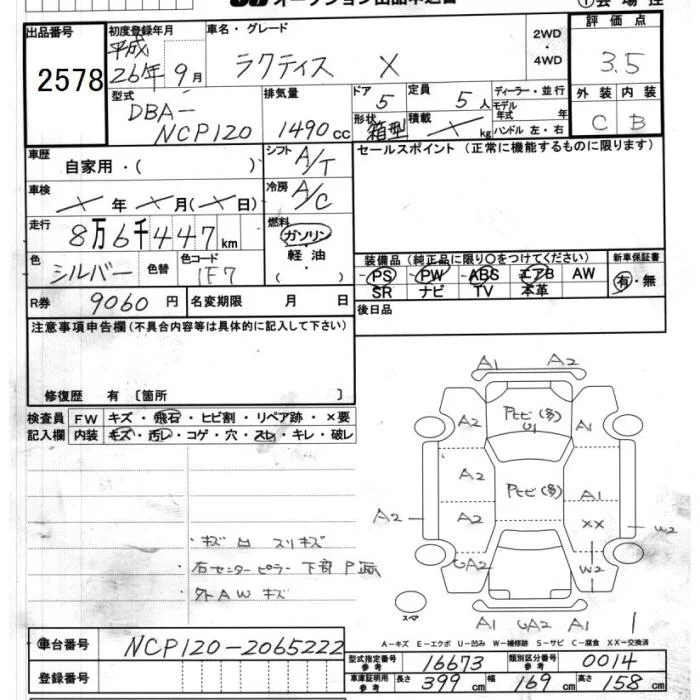 オークション出品申込書
①会場控
出品番号 2578
初度登録年月 平成 26年 9月
車名・グレード ラクティス X
2WD・4WD
評価点 3.5
型式 DBA-NCP120
排気量 1490cc
ドア 5
定員 5人
ディーラー・並行
形状 箱型
積載 ╱ kg
モデル年式 年
ハンドル 左・右
外装 内装
C B
車歴 自家用・( )
シフト A/T
セールスポイント(正常に機能するものに限ります)
車検 ╱年 ╱月(╱日)
冷房 A/C
走行 8万6千447km
燃料 ガソリン・軽油・( )
色 シルバー 色替 色コード 1F7
装備品(純正品に限り○をつけてください)
新車保証書
PS PW ABS エアB AW
有・無
SR ナビ TV 本革
R券 9060円 名変期限 月 日
後日品
注意事項申告欄(不具合内容等は具体的に記入して下さい)
修復歴 有〔箇所 〕
検査員 FW キズ・飛石・ヒビ割・リペア跡・×要
記入欄 内装 キズ・汚レ・コゲ・穴・スレ・キレ・破レ
A1 A2
A2 Pヒビ(多) U1 A1
A2 Pヒビ(多) A1
A2 A2 XX W2
UA2 W2
・キズ凹 スリキズ
・右センターピラー下部P跡
・外AWキズ
スペア
A1 UA2 A1
A-キズ E-エクボ U-凹み W-補修跡 S-サビ C-腐食 XX-交換済
車台番号 NCP120-2065222
登録番号
型式指定番号 参考 16673 類別区分番号 参考 0014
車庫証明用 参考 長さ 399cm 幅 169cm 高さ 158cm